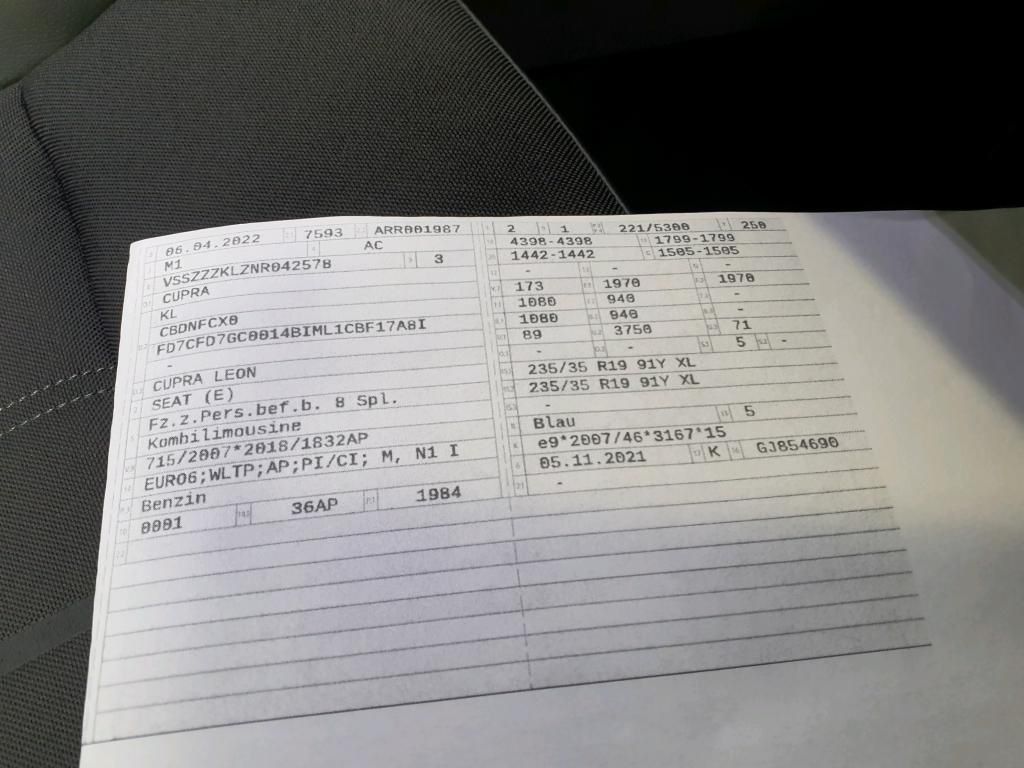 06.04.2022 7593 ARR001987
M1 AC
VSSZZZKLZNR042578 3
CUPRA
KL
CBDNFCX0
FD7CFD7GC0014BIML1CBF17A8I
-
CUPRA LEON
SEAT (E)
Fz.z.Pers.bef.b. 8 Spl.
Kombilimousine
715/2007*2018/1832AP
EURO6;WLTP;AP;PI/CI; M, N1 I
Benzin
0001 36AP 1984
2 1 221/5300 250
4398-4398 1799-1799
1442-1442 1505-1505
- - -
173 1970 1970
1080 940 -
1080 940 -
89 3750 71
- - 5 -
235/35 R19 91Y XL
235/35 R19 91Y XL
-
Blau 5
e9*2007/46*3167*15
05.11.2021 K GJ854690
-